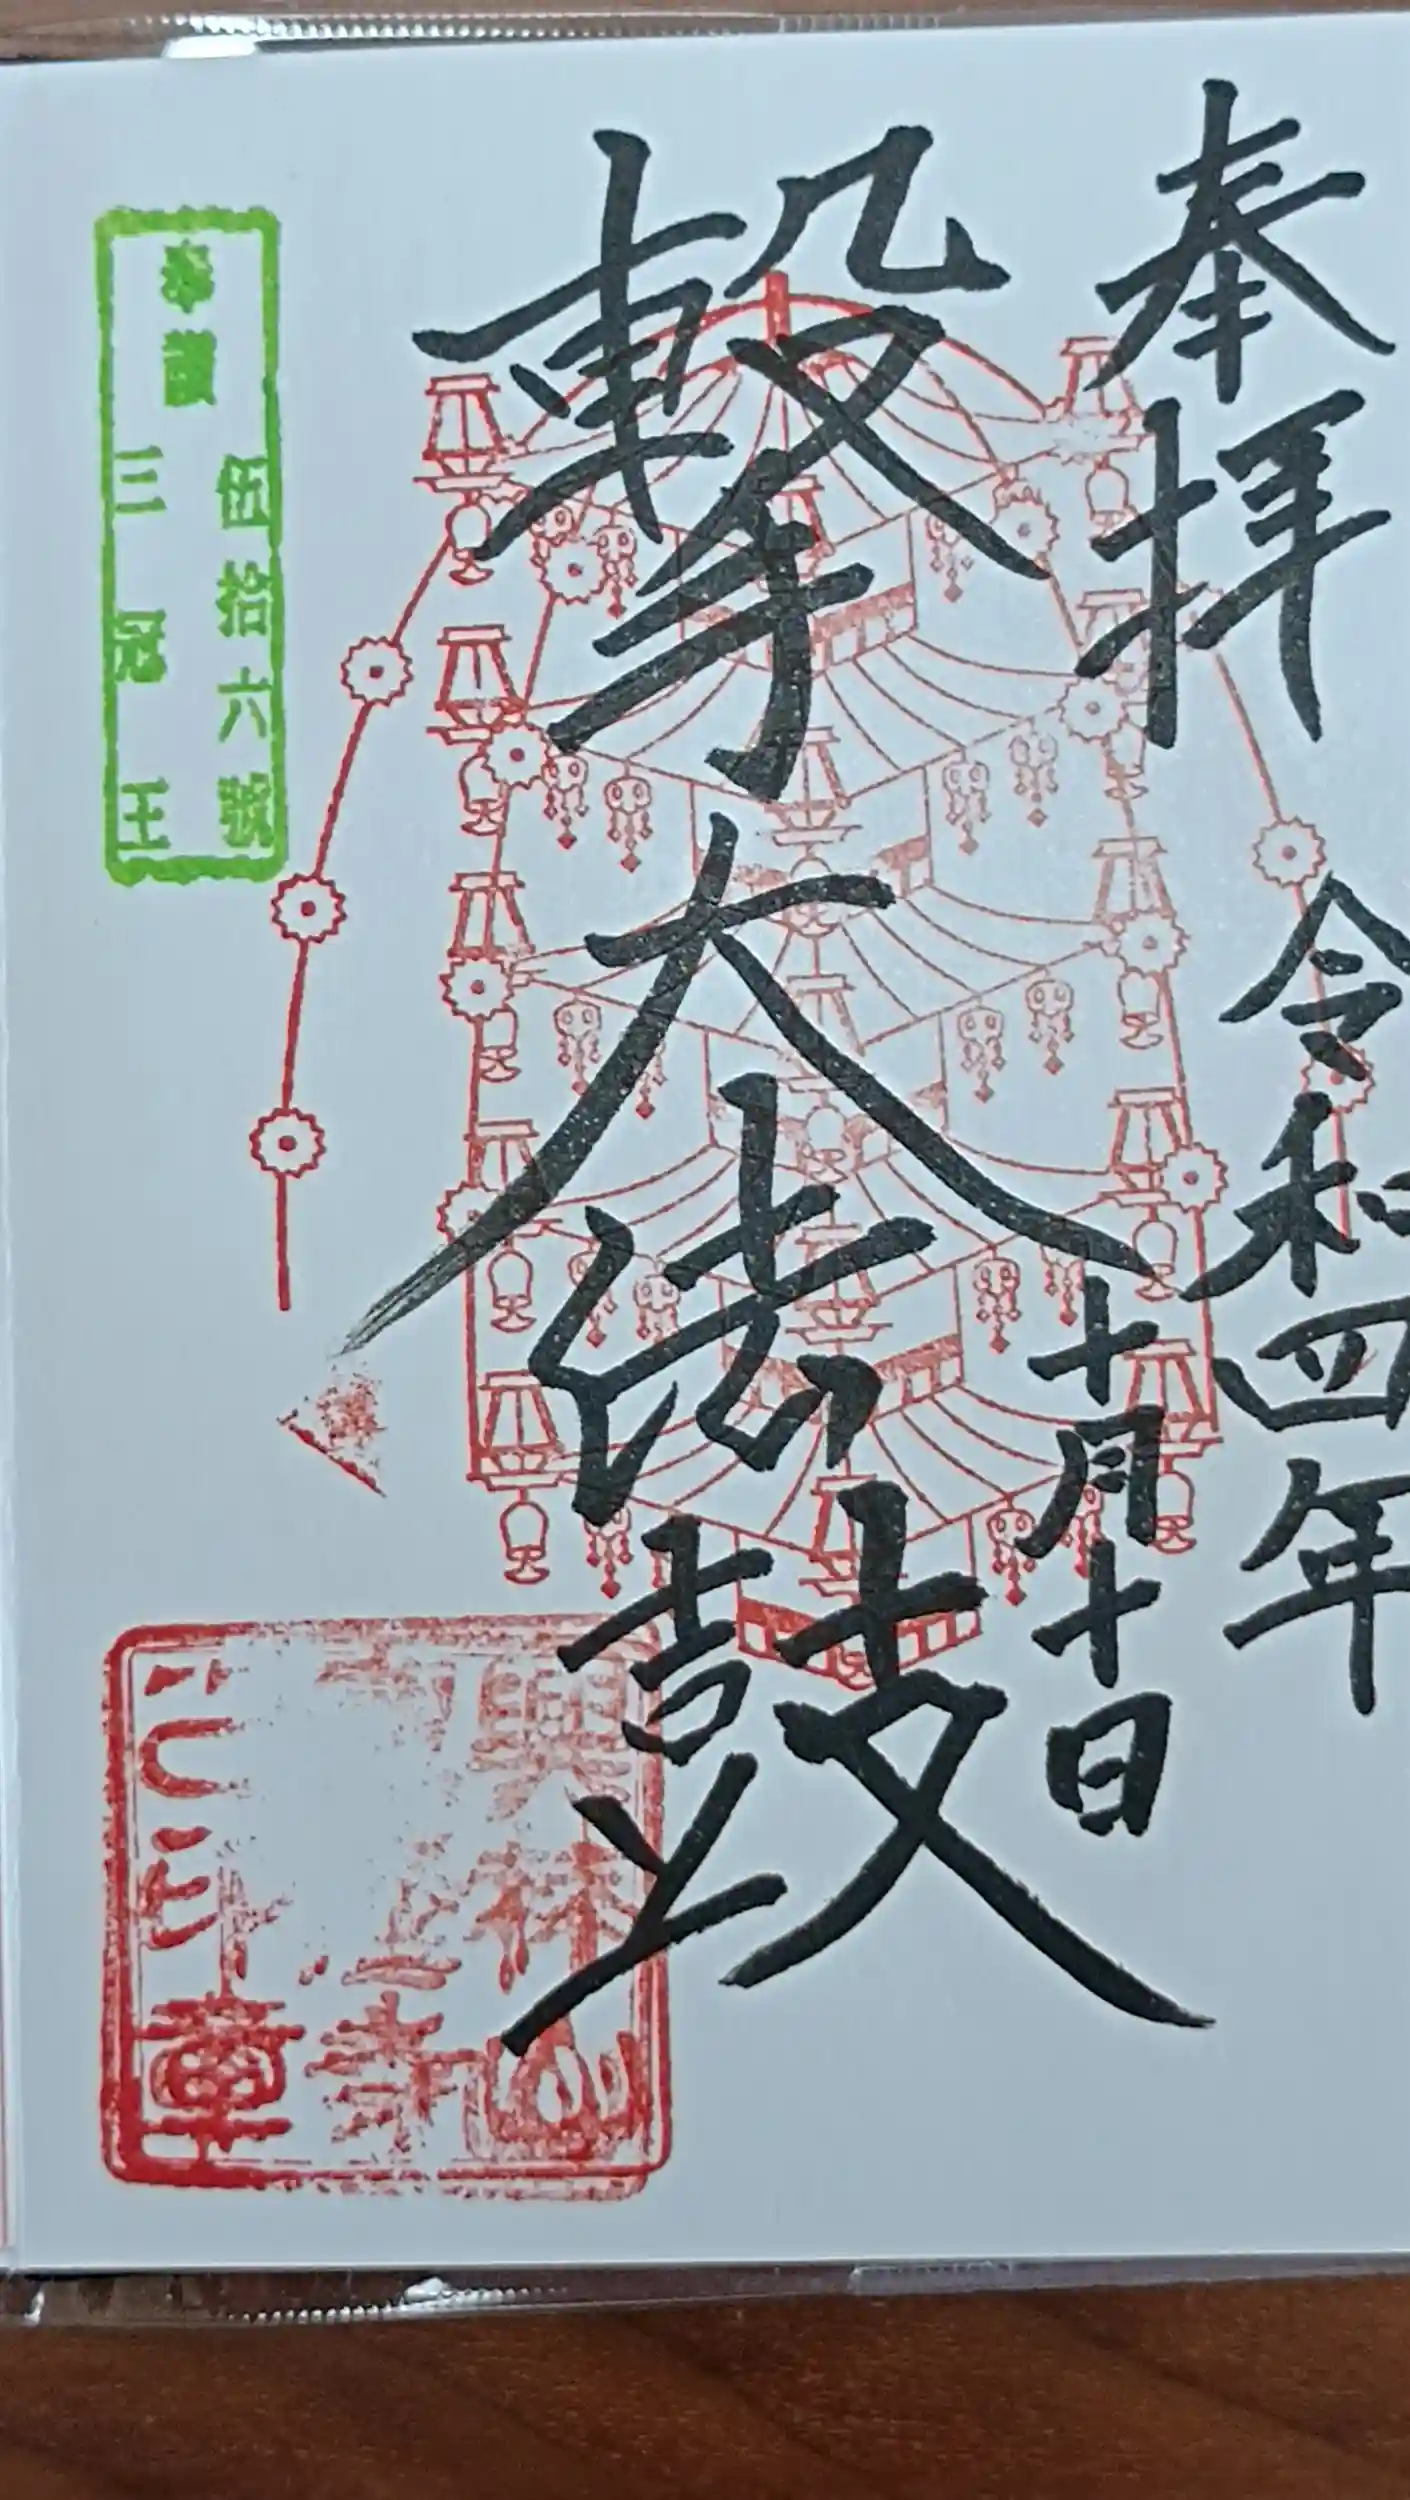 奉拝
令和四年
十月十日
撃大法鼓
奉讃
伍拾六號
三冠王
興林
寺
章